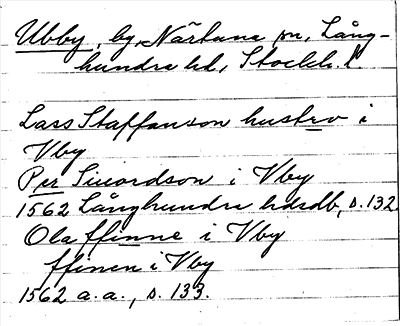 Ubby, by, Närtuna sn, Lång-
hundra hd, Stockh. l
Lass Staffanson hustrv i
Vby
Per Siuordson i Vby
1562 Långhundra hdsdb, s. 132.
Ola ffinne i Vby
ffinen i Vby
1562 a.a., s. 133.